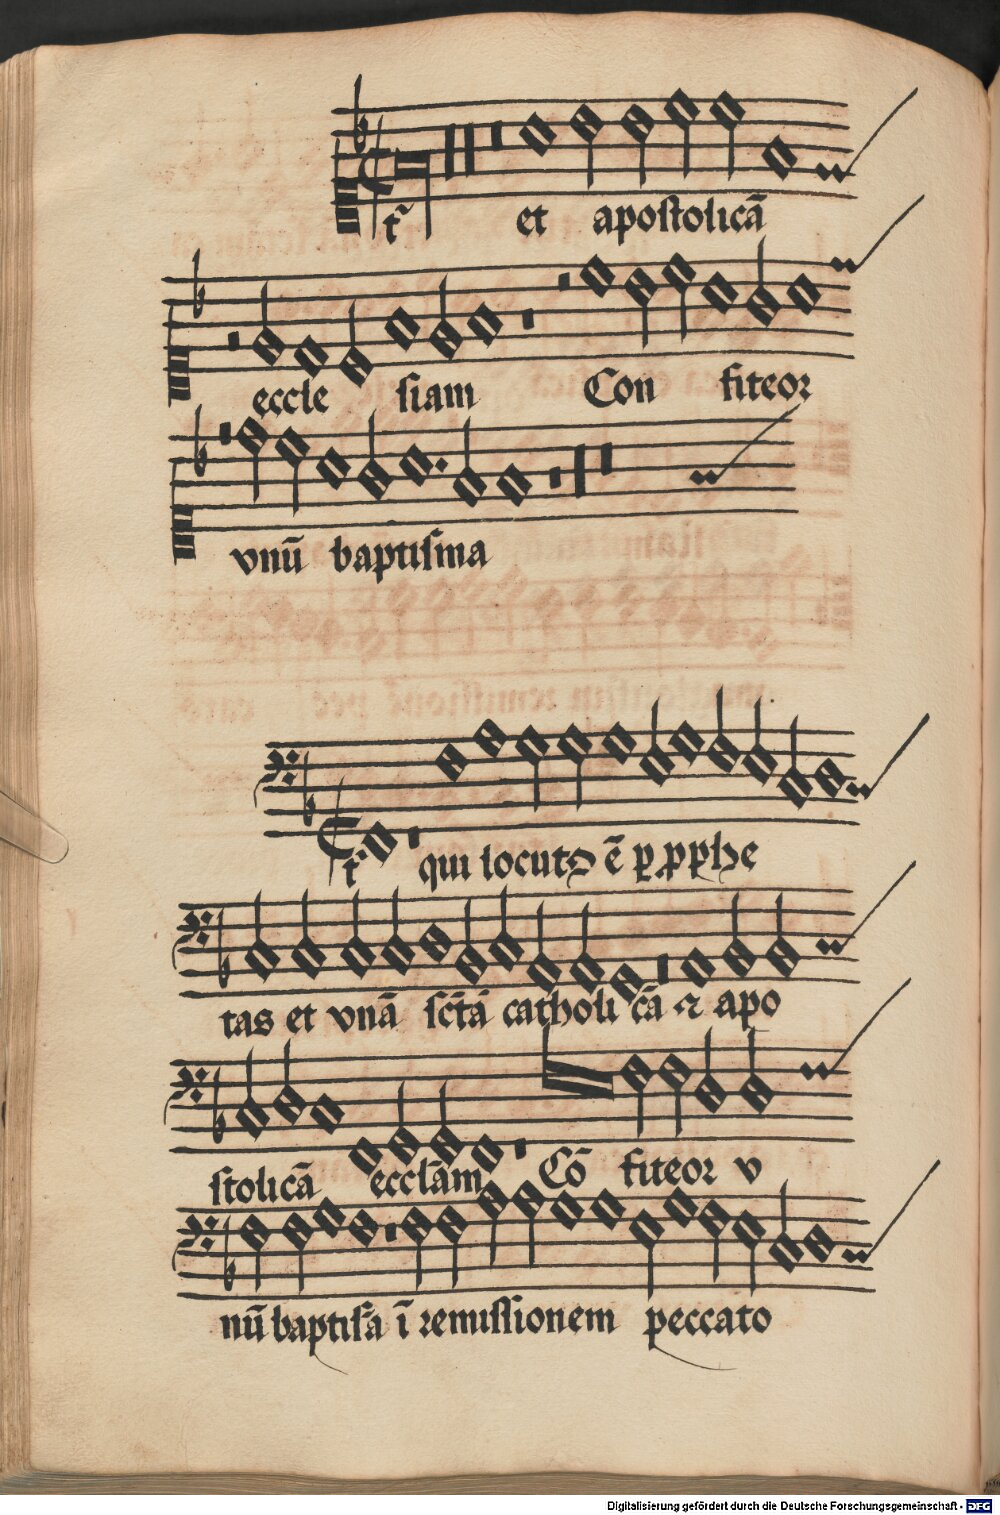 tr̃ et apostolicā
eccle siam Con fiteor
vnū baptisma
t qui locutꝰ ē ꝑ ꝓphe
tas et vnā sctā catholi cā ⁊ apo
stolicā ecclām Cō fiteor v
nū baptisā ī remissionem peccato
Digitalisierung gefördert durch die Deutsche Forschungsgemeinschaft - DFG